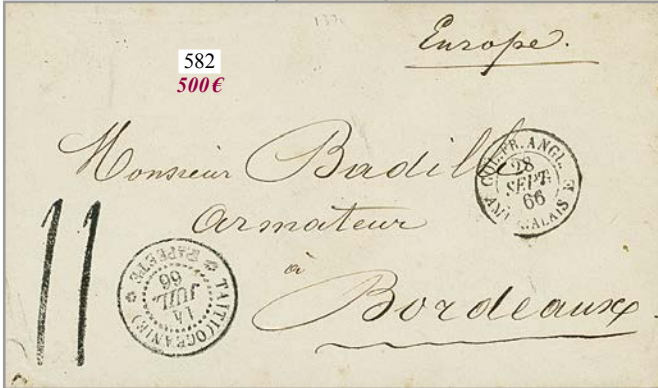 Europe.
582
500€
Monsieur Badille
armateur
à
Bordeaux.
COL. FR. ANGL.
28
SEPT.
66
AMB. CALAIS E
11
TAITI (OCEANIE)
14
JUIL.
66
* PAPEETE *